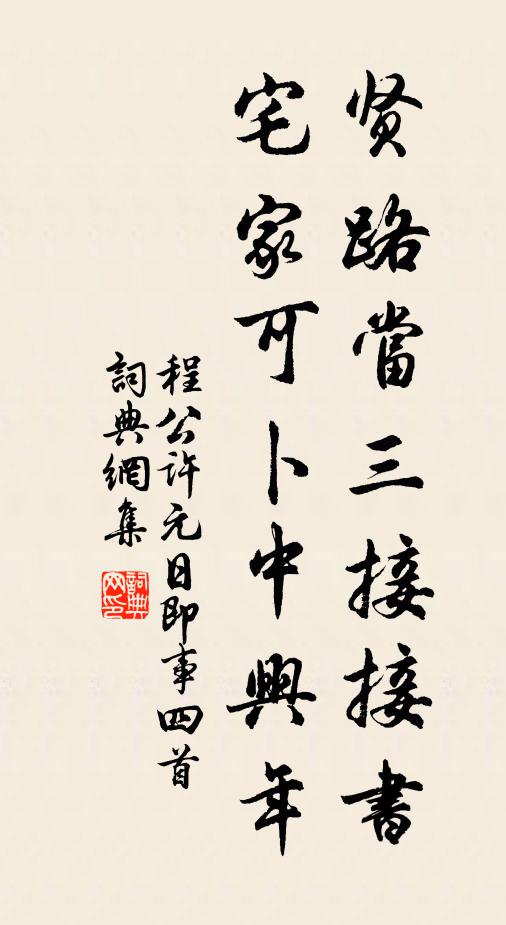 贤路當三接接書
宅家可卜中興年
程公許元日即事四首
詞典網集
詞典网印